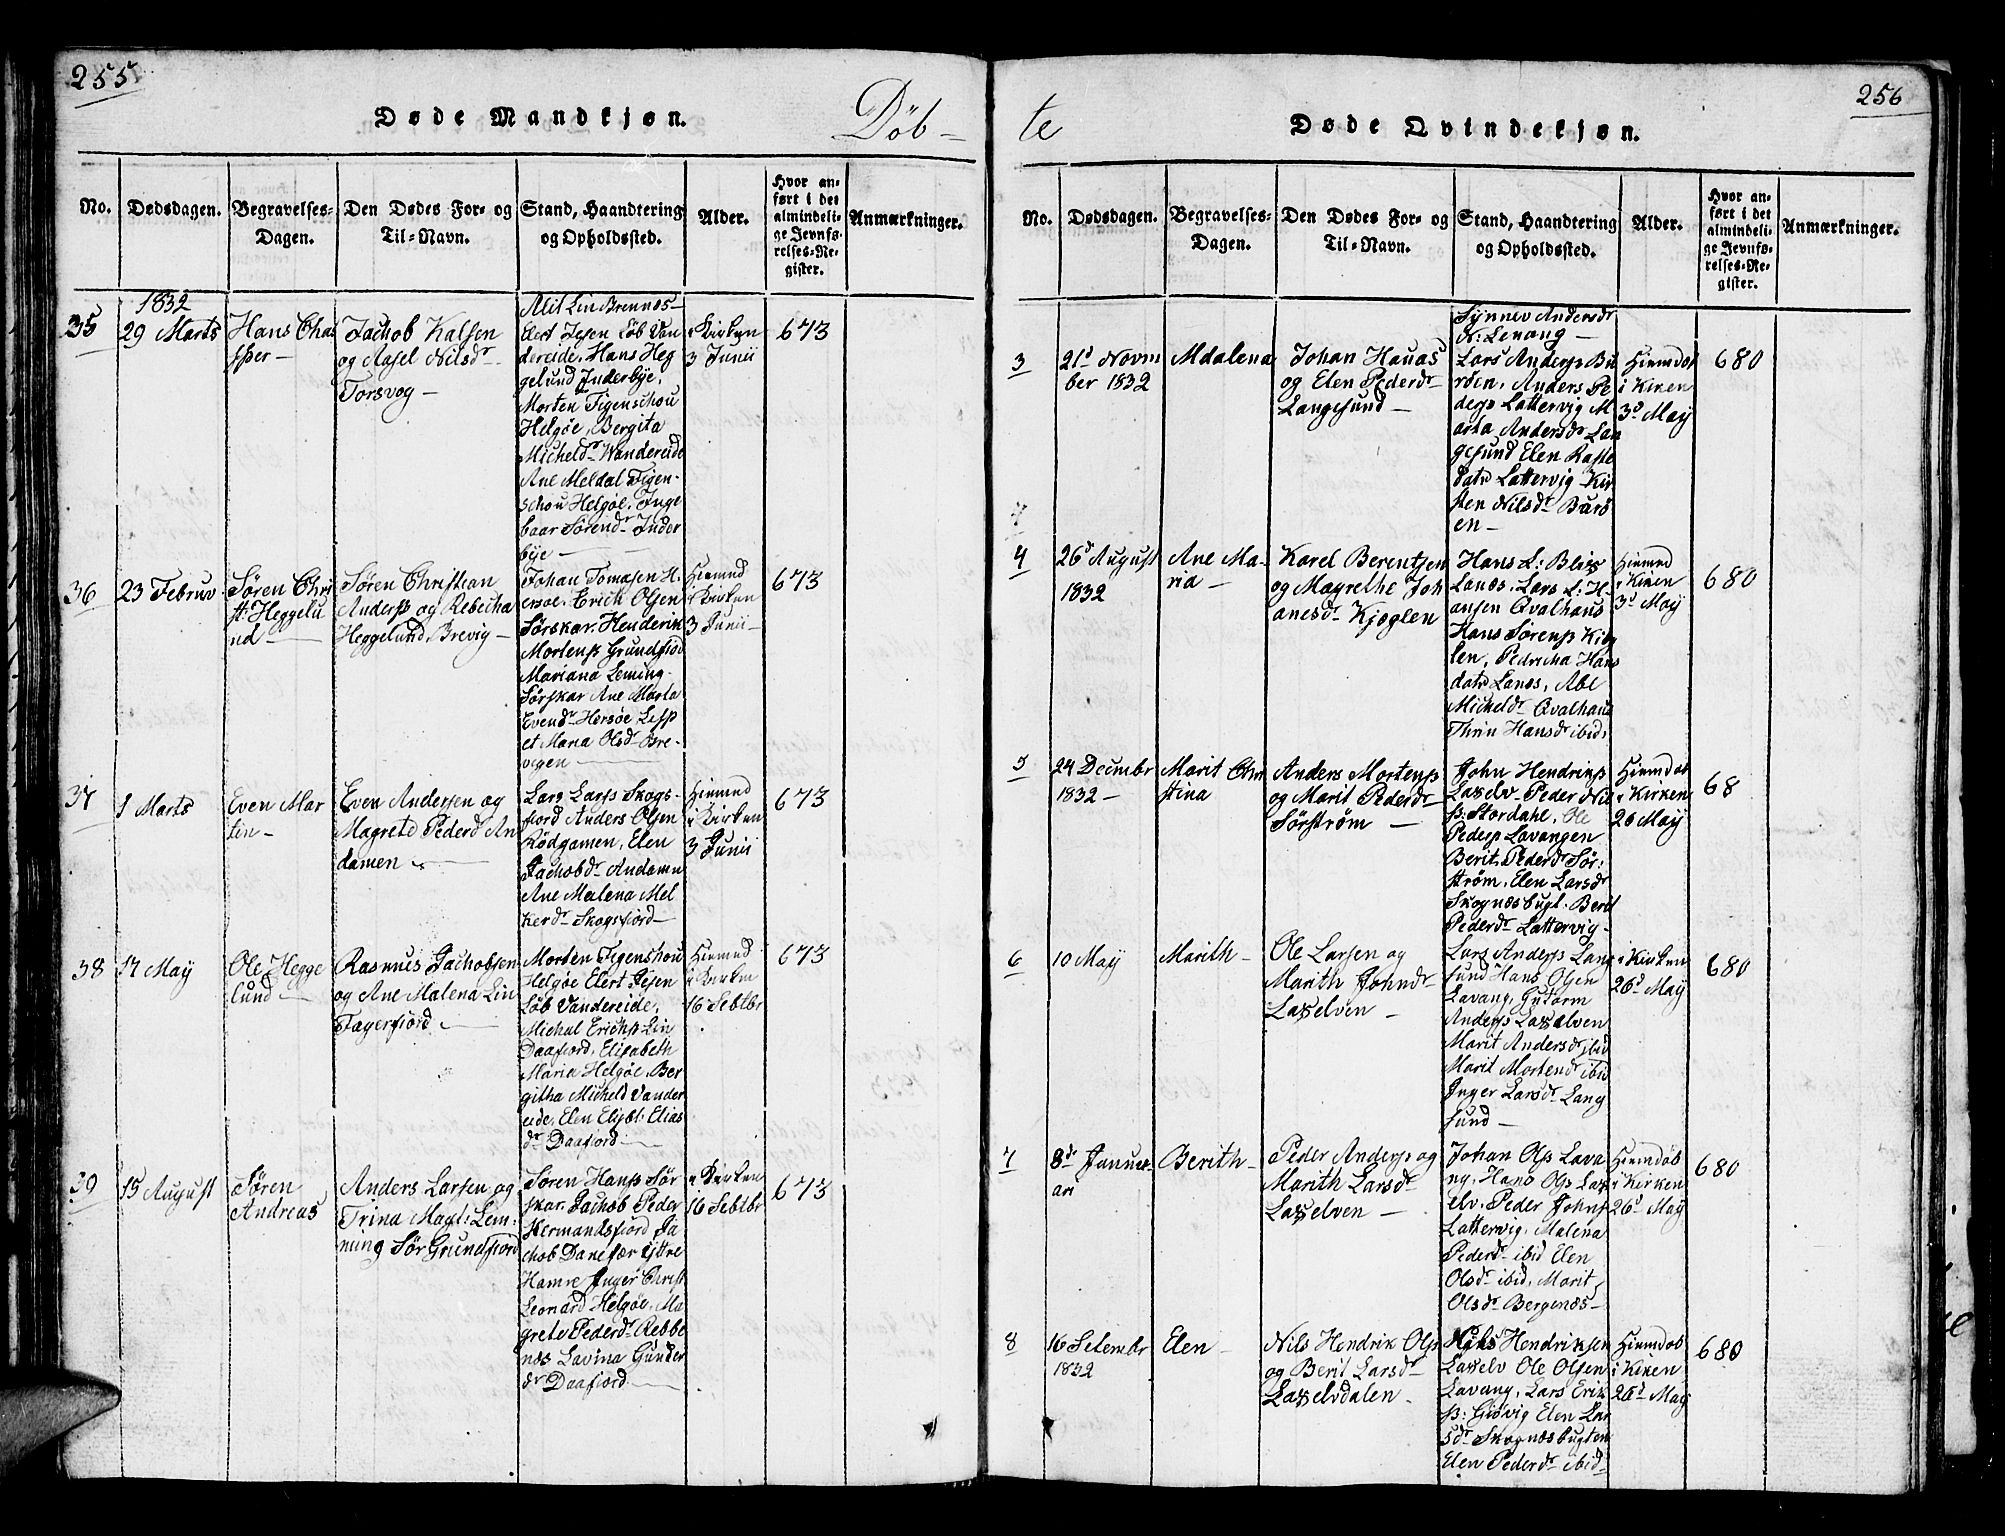 255
Døde Mandkjøn.
Døb-
No.
Dødsdagen.
Begravelses-
Dagen.
Den Dødes For- og
Til-Navn.
Stand, Haandtering
og Opholdssted.
Alder.
Hvor an-
ført i det
almindeli-
ge Jevnfø-
relses-Re-
gister.
Anmærkninger.
1832
35
29 Marts
Hans Chas
per -
Jachob Kalsen
og Aasel Nilsdr
Torsvog -
Alit Lin Brennes
Elert Jesen Løb Van
dereide, Hans Heg
gelund Inderbye,
Morten Figenschou
Helgøe, Bergita
Micheldr Wandereide
Ane Meldal Figen-
schou Helgøe, Inge
baar Sørendr Inder
bye
i Kirken
3 Junii
673
36
23 Februv
Søren Chri
st: Heggelu
nd
Søren Christian
Anderss og Rebecha
Heggelund, Brevig
Johan Tomasen H.
ersøe, Erick Olsen
Sørskar, Henderik
Mortenss Grundfior
Mariana Leming
Sørskar Ane Marta
Evendr Hersøe
et Maria Olsd Bre-
vigen
Hiemd
i Kirken
3 Junii
673
37
1 Marts
Even Mar
tin -
Even Andersen og
Magrete Pederd An
damen
Lars Larss Skogs-
fiord Anders Olsen
Rødgamen, Elen
Jachobdr Andamn
Ane Malena Mel
kerdr Skogsfjord
Hiemd
i Kirken
3 Junii
673
38
17 May
Ole Hegge
lund
Rasmus Jachobsen
og Ane Malena Lin
Fagerfjord
Morten Figenshou
Helgøe Elert Jesen
Løb Vandereide,
Michal Erichss Lin
Daafiord, Elisabeth
Maria Helgøe, Ber
githa Micheld Vander
eide, Elen Elisbt: Elias
dr Daafjord
Hiemd
i Kirken
16 Sebtbr
673
39
15 August
Søren
Andreas
Anders Larsen og
Trina Magt: Lem-
ming Sør Grundfjord
Søren Hanss Sør
skar, Jachob Peder
Hermandsfjord Ja
chob Danefær Yttre
Hamre Inger Christ
Leonard Helgøe, Ma
grete Pederdr Rebbe
næs Lavina Gunder
dr Daafjord
i Kirken
16 Sebtbr
673
te
Døde Qvindekjøn.
256
No.
Dødsdagen.
Begravelses-
Dagen.
Den Dødes For- og
Til-Navn.
Stand, Haandtering
og Opholdssted.
Alder.
Hvor an-
ført i det
almindeli-
ge Jevnfø-
relses-Re-
gister.
Anmærkninger.
3
21d Novm
ber 1832
Mdalena
Johan Hauas
og Elen Pederdr
Langesund
Synnev Andersdr
N: Lenang
Lars Anderss Bu
røen, Anders Pe
derss Lattervig M
arta Andersdr Lan
gesund Elen Kaste
datr Lattervig Kir
sten Nilsdr Burø
en -
Hiemdøb
i Kirken
3d May
680
4
26d August
1832
Ane Ma-
ria
Karel Berentsen
og Magrethe Joh
anesdr Kjoglen
Hans L: Blix
Lanes, Lars L: H
ansen Qvalhaus
Hans Sørenss Kiog
len, Pedricha Hans
datr Lanes, Abe
Micheldr Qvalhaus
Thrin Hansdr ibid,
Hiemd
i Kirken
3d May
680
5
24 Decmbr
1832 -
Marit Chri
stina
Anders Mortenss
og Marit Pederdr
Sørstrøm -
John Hendrikss
Laxelv Peder Nil
ss: Stordahl, Ole
Pederss Lavangen
Berit Pederdr Sør:
strøm, Elen Larsdr
Skognæsbugt. Berit
Pederdr Lattervig
Hiemdøb
i Kirken
26 May
68
6
10 May
Marith
Ole Larsen og
Marith Johndr
Laxelven -
Lars Anderss Lang
sund Hans Olsen
Lavang, Gutorm
Anderss Laxelven
Marit Andersdr ibid
Marit Mortendr ibid
Inger Larsdr Lang
sund
i Kirken
26d May
680
7
8d Janua-
ari
Berith
Peder Anderss og
Marith Larsdr
Laxelven
Johan Olss Lava
ng, Hans Olss Lax
elv, Peder Johnss
Lattervig, Malena
Pederdr ibid Elen
Olsdr ibid, Marit
Olsdr Bergenæs
Hiemdøb
i Kirken
26d May
680
8
16 Setembr
1832
Elen
Nils Hendrik Olss
og Berit Larsdr
Laxelvdalen
Hendriksen
Laxelv Ole Olsen
Lavang, Lars Erik
ss: Giøvig Elen Lar
sdr Skognæsbugten
Elen Pederdr ibid
Hiemdøb
i Kirken
26d May
680